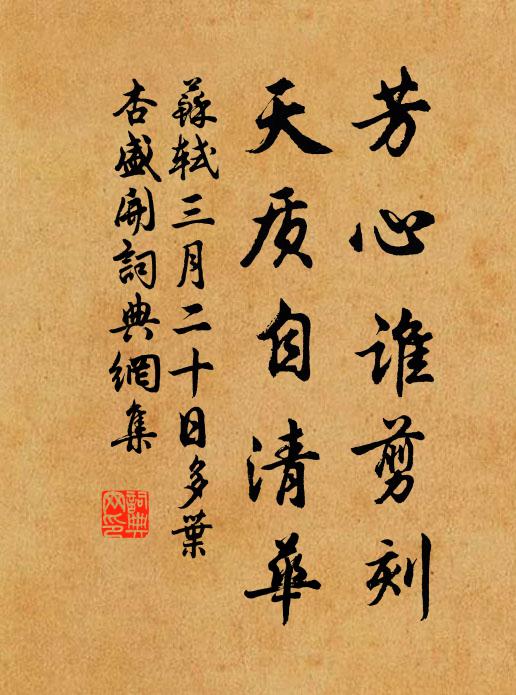 芳心谁剪刻
天质自清华
蘇軾三月二十日多葉
杏盛開詞典網集
詞典网印